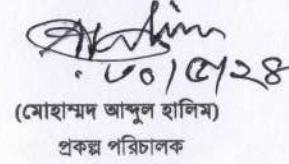 ৩০/৫/২৪
(মোহাম্মদ আব্দুল হালিম)
প্রকল্প পরিচালক